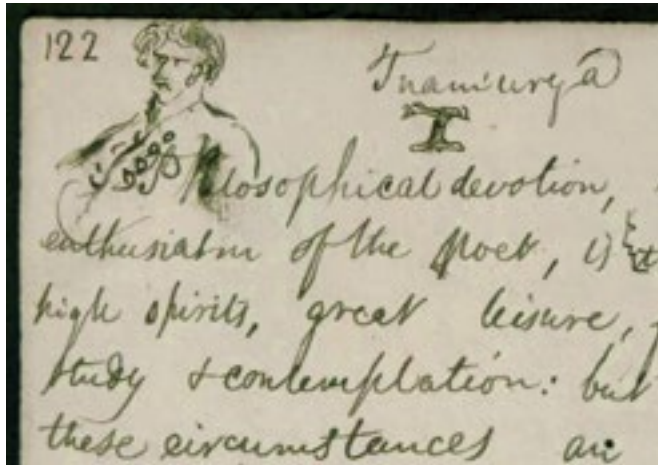 122
Tnamurya
I
Philosophical devotion,
enthusiasm of the Poet, is
high spirits, great leisure,
study & contemplation: but
these circumstances are